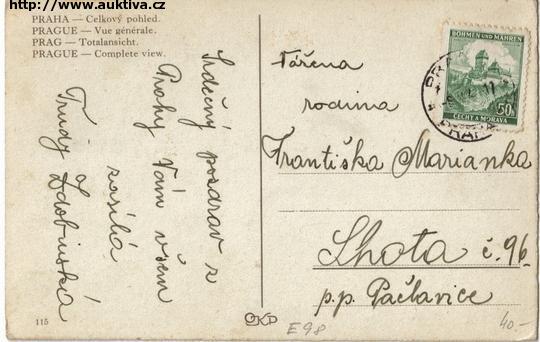 http://www.auktiva.cz
PRAHA — Celkový pohled.
PRAGUE — Vue générale.
PRAG — Totalansicht.
PRAGUE — Complete view.
Srdečný pozdrav z
Prahy Vám všem
zasílá
Trudy Zdobinská
115
BÖHMEN UND MÄHREN
50h
ČECHY A MORAVA
Vážena
rodina
Františka Marianka
Lhota č. 96
p.p. Pačlavice
OKP
E98
40.-